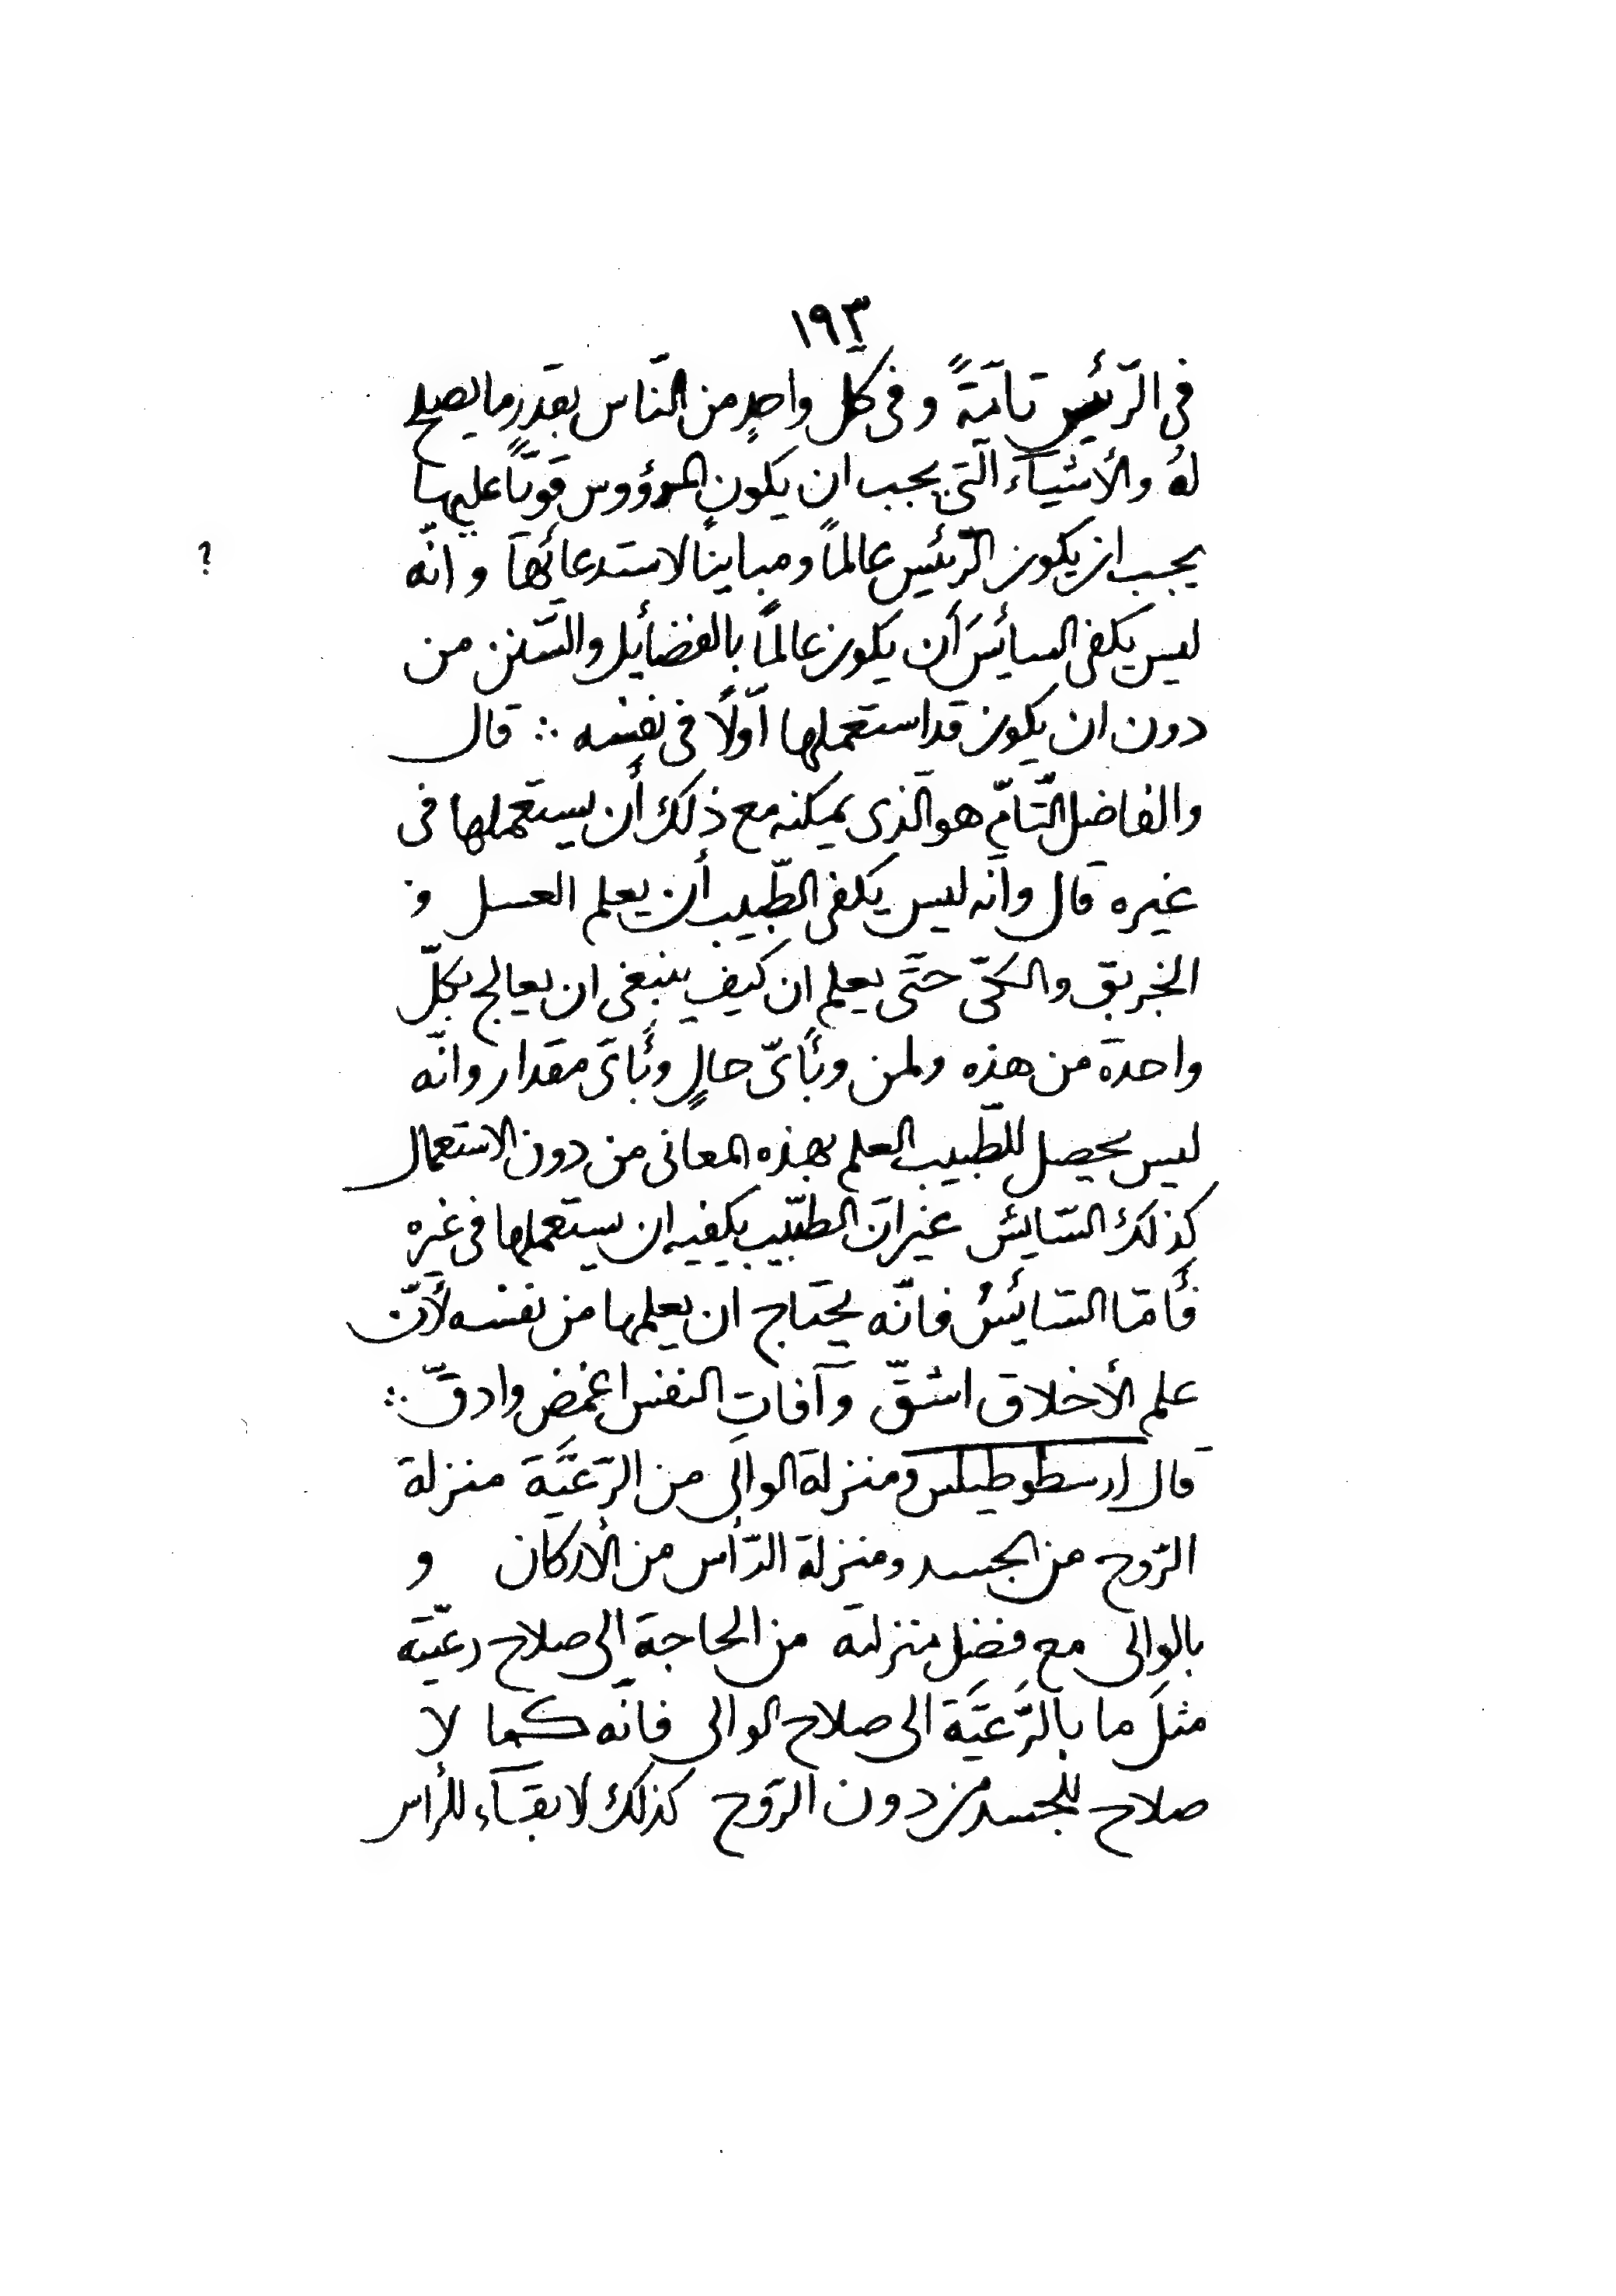 ١٩٣
فى الرّئيس تامّةً و فى كل واحدٍ من النّاس بقدر ما يصلح
لهُ والأشياء الّتى يجب ان يكون المرؤوس قويّاً عليها
يجب ان يكون الرّئيس عالماً ومباينًا لاستدعائها و انّه
؟
ليس يكفى السائسَ أن يكون عالماً بالفضايل والسّنن من
دون ان يكون قد استعملها اوّلًا فى نفسه ∴ قال
والفاضل التّامّ هو الّذى يمكنه مع ذلك أن يستعملها فى
غيره قال وانّه ليس يكفى الطّبيب أن يعلم العسل و
الخربق والكىّ حتّى يعلم ان كيف ينبغى ان يعالج بكلّ
واحدة من هذه ولمن وبأىّ حالٍ وبأىّ مقدار وانّه
ليس يحصل للطّبيب العلم بهذه المعانى من دون الاستعمال
كذلك السّايس غير انّ الطبّيب يكفيه ان يستعملها فى غيره
فأمّا السّائسُ فانّه يحتاج ان يعلمها من نفسه لأنّ
علم الأخلاق اشقّ وآفاتِ النفس اغمض وادقّ ∴
قال ارسطوطيلس ومنزلة الوالى من الرّعيّة منزلة
الرّوح من الجسد ومنزلة الرّأس من الأركان و
بالوالى مع فضل منزلته من الحاجة الى صلاح رعيّته
مثلَ ما بالرّعيّة الى صلاح الوالى فانّه كما لا
صلاح للجسد من دون الرّوح كذلك لا بقاء للراس